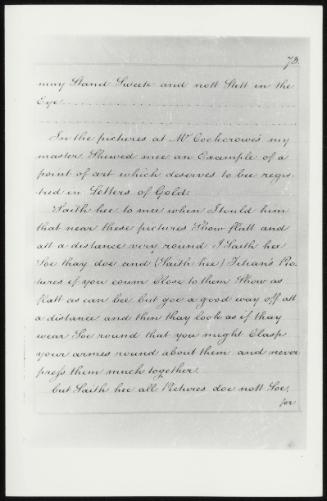 73.
may Stand Sweete and nott Stell in the
Eye
In the pictures at Mr Cockcrowe's my
master Shewed mee an Example of a
point of art which deserves to bee regis
tred in Letters of Gold.
Saith hee to mee when I tould him
that neare these pictures Show flatt and
att a distance very round I Saith hee
Soe thay doe and (Saith hee) Titian's Pic
tures if you coum Close to them Show as
flatt as can bee but goe a good way off att
a distance and then thay look as if thay
wear Soe round that you might Clasp
your armes round about them and never
press them much together.
but Saith hee all Pictures doe nott Soe,
for